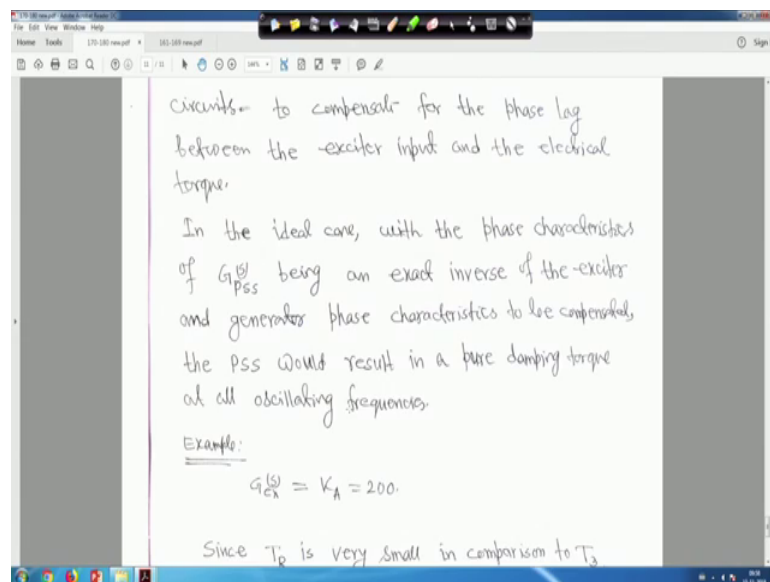 170-180 new.pdf - Adobe Acrobat Reader DC
File Edit View Window Help
Home Tools 170-180 new.pdf × 161-169 new.pdf Sign
11 / 11
circuits to compensate for the phase lag
between the exciter input and the electrical
torque.
In the ideal case, with the phase characteristics
of G_PSS(s) being an exact inverse of the exciter
and generator phase characteristics to be compensated,
the PSS would result in a pure damping torque
at all oscillating frequencies.
Example:
G_ex(s) = K_A = 200.
Since T_R is very small in comparison to T_3